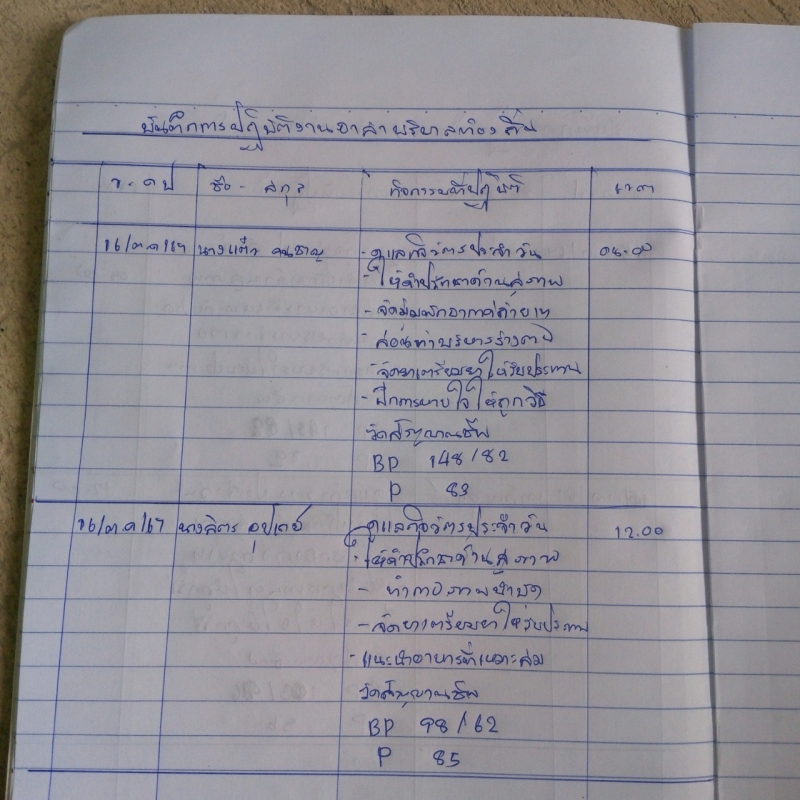 บันทึกการปฏิบัติงานอาสาบริบาลท้องถิ่น
ว.ด.ป ชื่อ - สกุล กิจกรรมที่ปฏิบัติ เวลา
16/ต.ค/67 นางแต๋ว คนชาญ - ดูแลกิจวัตรประจำวัน 09.00
- ให้คำปรึกษาด้านสุขภาพ
- จัดมุมพักอากาศถ่ายเท
- สอนท่าบริหารร่างกาย
- จัดยาเตรียมยาให้รับประทาน
- ฝึกการหายใจให้ถูกวิธี
วัดสัญญาณชีพ
BP 148/82
P 83
16/ต.ค/67 นางลิตร - ดูแลกิจวัตรประจำวัน 12.00
- ให้คำปรึกษาด้านสุขภาพ
- ทำกายภาพบำบัด
- จัดยาเตรียมยาให้รับประทาน
- แนะนำอาหารที่เหมาะสม
วัดสัญญาณชีพ
BP 98/62
P 85